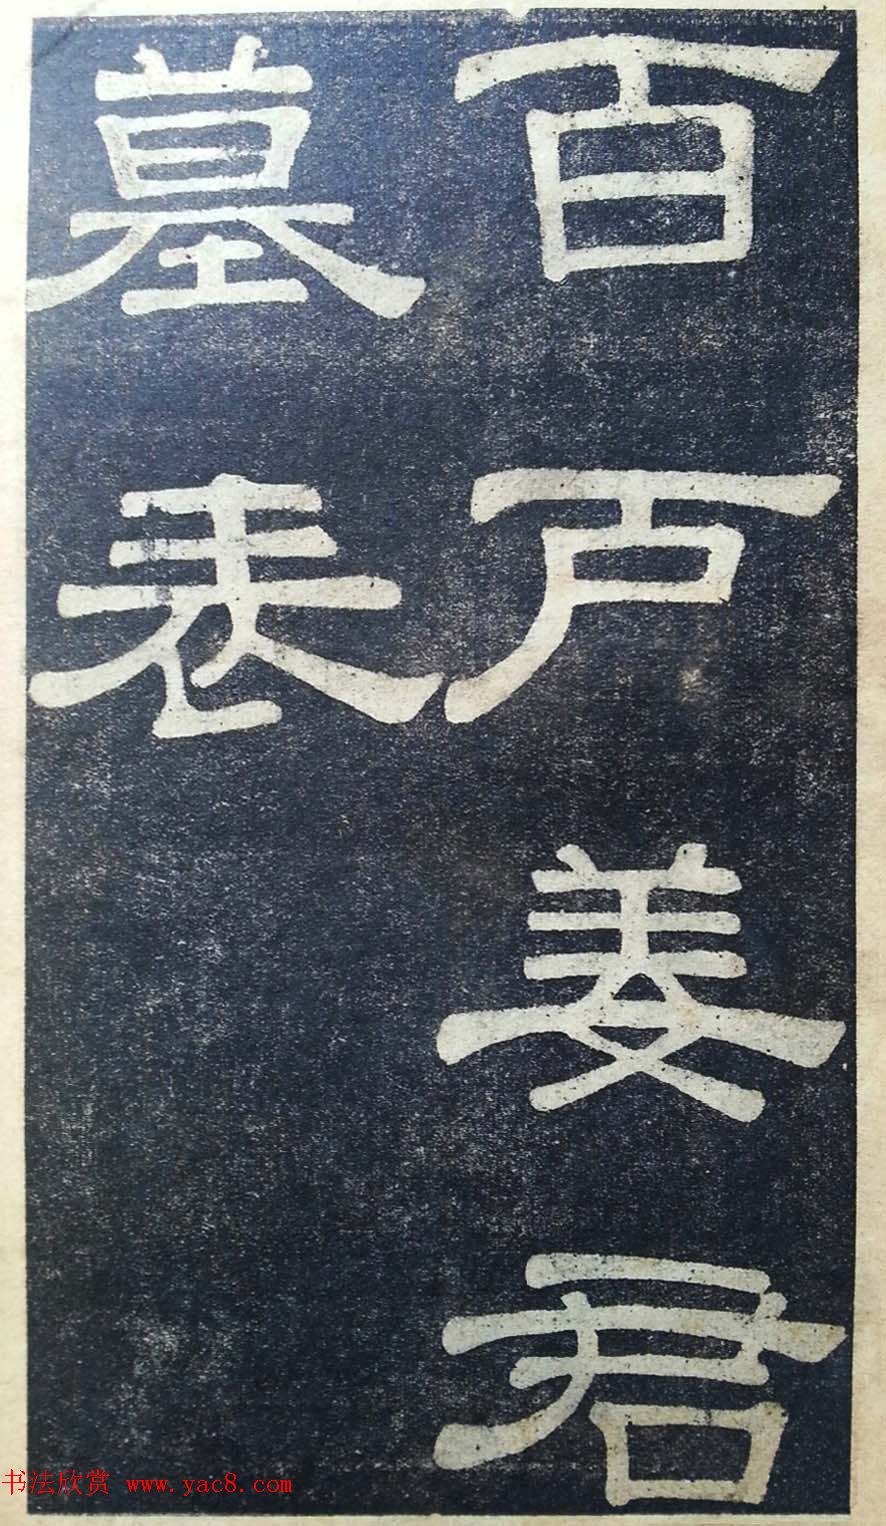 百户姜君
墓表
书法欣赏 www.yac8.com